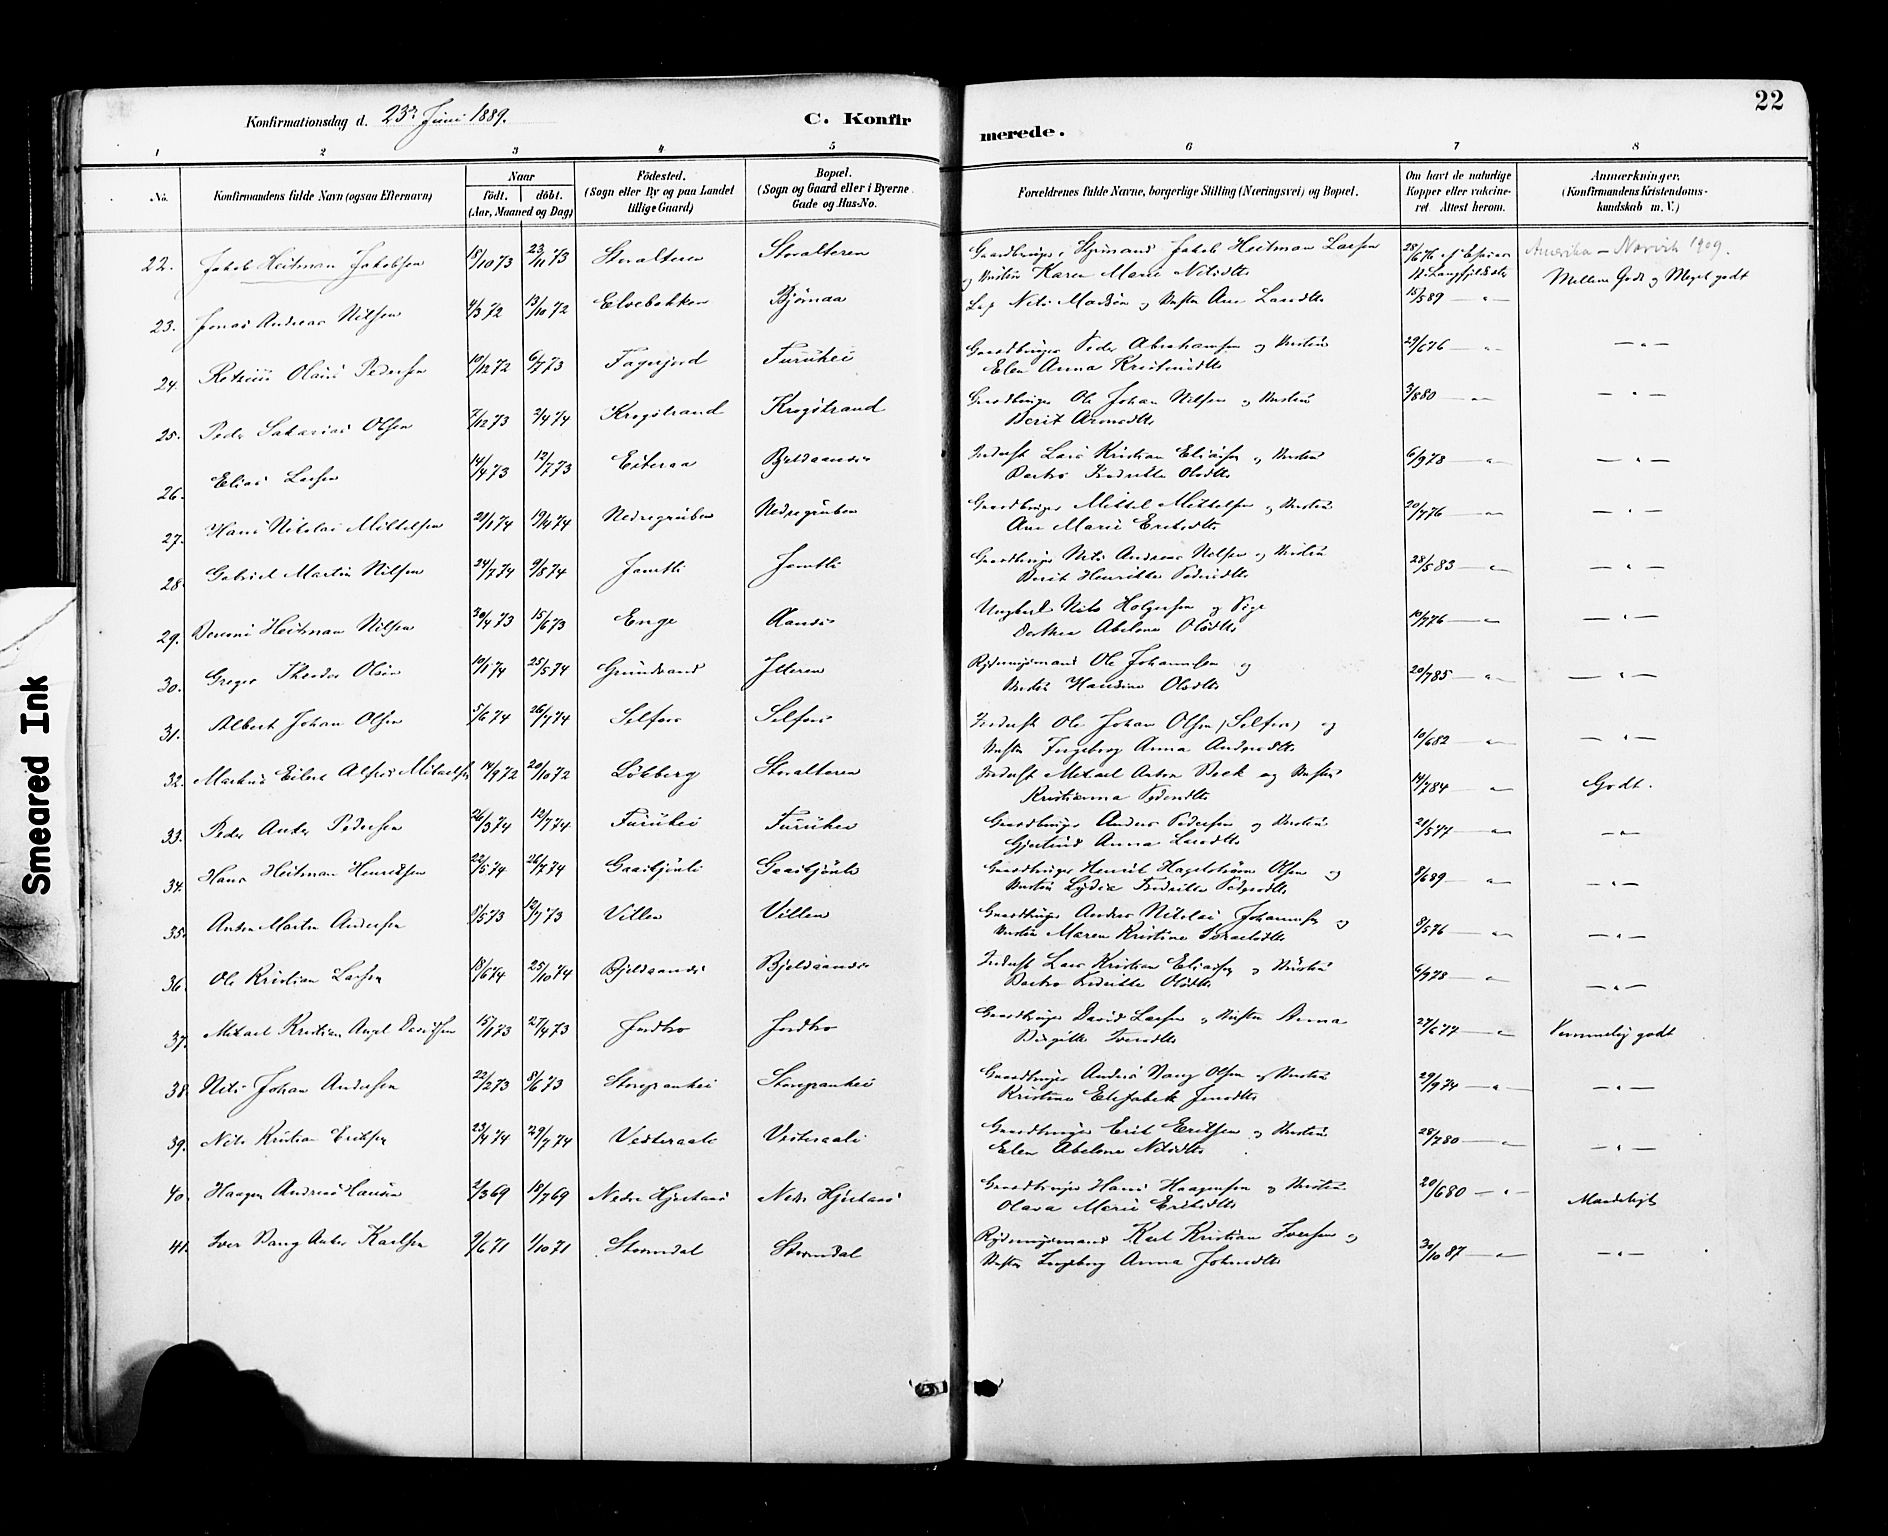 22
Konfirmationsdag d. 23de Juni 1889.
C. Konfirmerede.
1 2 3 4 5 6 7 8
No.
Konfirmandens fulde Navn (ogsaa Efternavn)
Naar
födt. döbt.
(Aar, Maaned og Dag)
Födested.
(Sogn eller By og paa Landet
tillige Gaard)
Bopæl.
(Sogn og Gaard eller i Byerne
Gade og Hus-No.
Forældrenes fulde Navne, borgerlige Stilling (Næringsvei) og Bopæl.
Om havt de naturlige
Kopper eller vaccine-
ret Attest herom.
Anmærkninger.
(Konfirmandens Kristendoms-
kundskab m. V.)
22. Jakob Heitman Jakobsen 18/10 73 23/11 73 Storalteren Storalteren Gaardbruger, Jakob Heitman Larsen 28/6 76 Amerika — Narvik 1909.
og Hustru Karen Marie Nilsdtr Mellem Godt og Meget godt
23. Jonas Andreas Nilsen 4/3 72 13/10 72 Elvebakken Bjørnaa Nils Madsen og Hustru Ane Larsdtr 15/5 89 — " —
24. Olaus Pedersen 10/12 72 6/7 73 Fagerjord Furuhei Gaardbruger Peder Abrahamsen og Hustru 29/6 76 — " — — " —
Elen Anna Kristensdtr
25. Peder Sakarias Olsen 7/12 73 2/4 74 Krogstrand Krogstrand Gaardbruger Ole Johan Nilsen og Hustru 3/8 80 — " — — " —
Berit
26. Elias Larsen 14/4 73 12/7 73 Eiteraa Bjeldaanes Inderst Lars Kristian Eliassen og Hustru 6/9 78 — " — — " —
Fredrikke Olsdtr
27. Hans Nikolai Mikkelsen 28/1 74 19/4 74 Nedregruben Nedregruben Gaardbruger Mikkel Mikkelsen og Hustru 20/7 76 — " — — " —
Ane Marie Eriksdtr
28. Gabriel Martin Nilsen 24/7 74 9/8 74 Jamtli Jamtli Gaardbruger Nils Andreas Nilsen og Hustru 28/5 83 — " — — " —
Berit Henrikke Pedersdtr
29. Heitman Nilsen 30/4 73 15/6 73 Enge Aanes Ungkarl Nils Holgersen og Pige 10/7 76 — " — — " —
Dorthea Abelone Olsdtr
30. Greger Theodor Olsen 10/1 74 25/5 74 Grundvand Ytteren Rydningsmand Ole Johannesen og 20/7 85 — " — — " —
Hustru Olsdtr
31. Albert Johan Olsen 5/6 74 26/7 74 Selfors Selfors Inderst Ole Johan Olsen (Selfors) og 10/6 82 — " — — " —
Hustru Ingeborg Anna Andersdtr
32. Markus Eilert Alfred Mikaelsen 14/9 72 20/10 72 Løkberg Storalteren Inderst Mikael Anton Beck og Hustru 14/7 84 — " — Godt.
Kristianna Pedersdtr
33. Peder Anton Pedersen 26/3 74 12/7 74 Furuhei Furuhei Gaardbruger Anders Pedersen og Hustru 21/5 77 — " — — " —
Gjertrud Anna Larsdtr
34. Hans Heitman Henriksen 22/5 74 26/7 74 Gaasbjønli Gaasbjønli Gaardbruger Henrik Hagelstrøm Olsen og 8/6 89 — " — — " —
Hustru Lydia Fredrikke Pedersdtr
35. Anton Martin Andersen 8/5 73 12/7 73 Villen Villen Gaardbruger Anders Nikolai Johannessen og 8/5 76 — " — — " —
Hustru Maren Kristine Israelsdtr
36. Ole Kristian Larsen 18/6 74 25/10 74 Bjeldaanes Bjeldaanes Inderst Lars Kristian Eliassen og Hustru 6/9 78 — " — — " —
Fredrikke Olsdtr
37. Mikael Kristian Angel Davidsen 15/1 73 27/4 73 Jordbro Jordbro Gaardbruger David Larsen og Hustru Anna 27/6 77 — " — Temmelig godt
Birgitte
38. Nils Johan Andersen 22/2 73 8/6 73 Gaardbruger Anders Vang Olsen og Hustru 29/9 74 — " — — " —
Kristine Elisabeth Jensdtr
39. Nils Kristian Eriksen 23/4 74 29/7 74 Vesteraali Vesteraali Gaardbruger Erik Eriksen og Hustru 28/7 80 — " — — " —
Elen Abelone Nilsdtr
40. Haagen Andreas Hansen 2/3 69 18/7 69 Nedre Hjertaas Nedre Hjertaas Gaardbruger Hans Haagensen og Hustru 20/6 80 — " — Maadeligt
Olava Marie Eriksdtr
41. Iver Bang Anton Karlsen 9/6 71 1/10 71 Stormdal Stormdal Rydningsmand Karl Kristian Iversen og 30/10 87 — " — — " —
Hustru Ingeborg Anna Johnsdtr
Smeared Ink